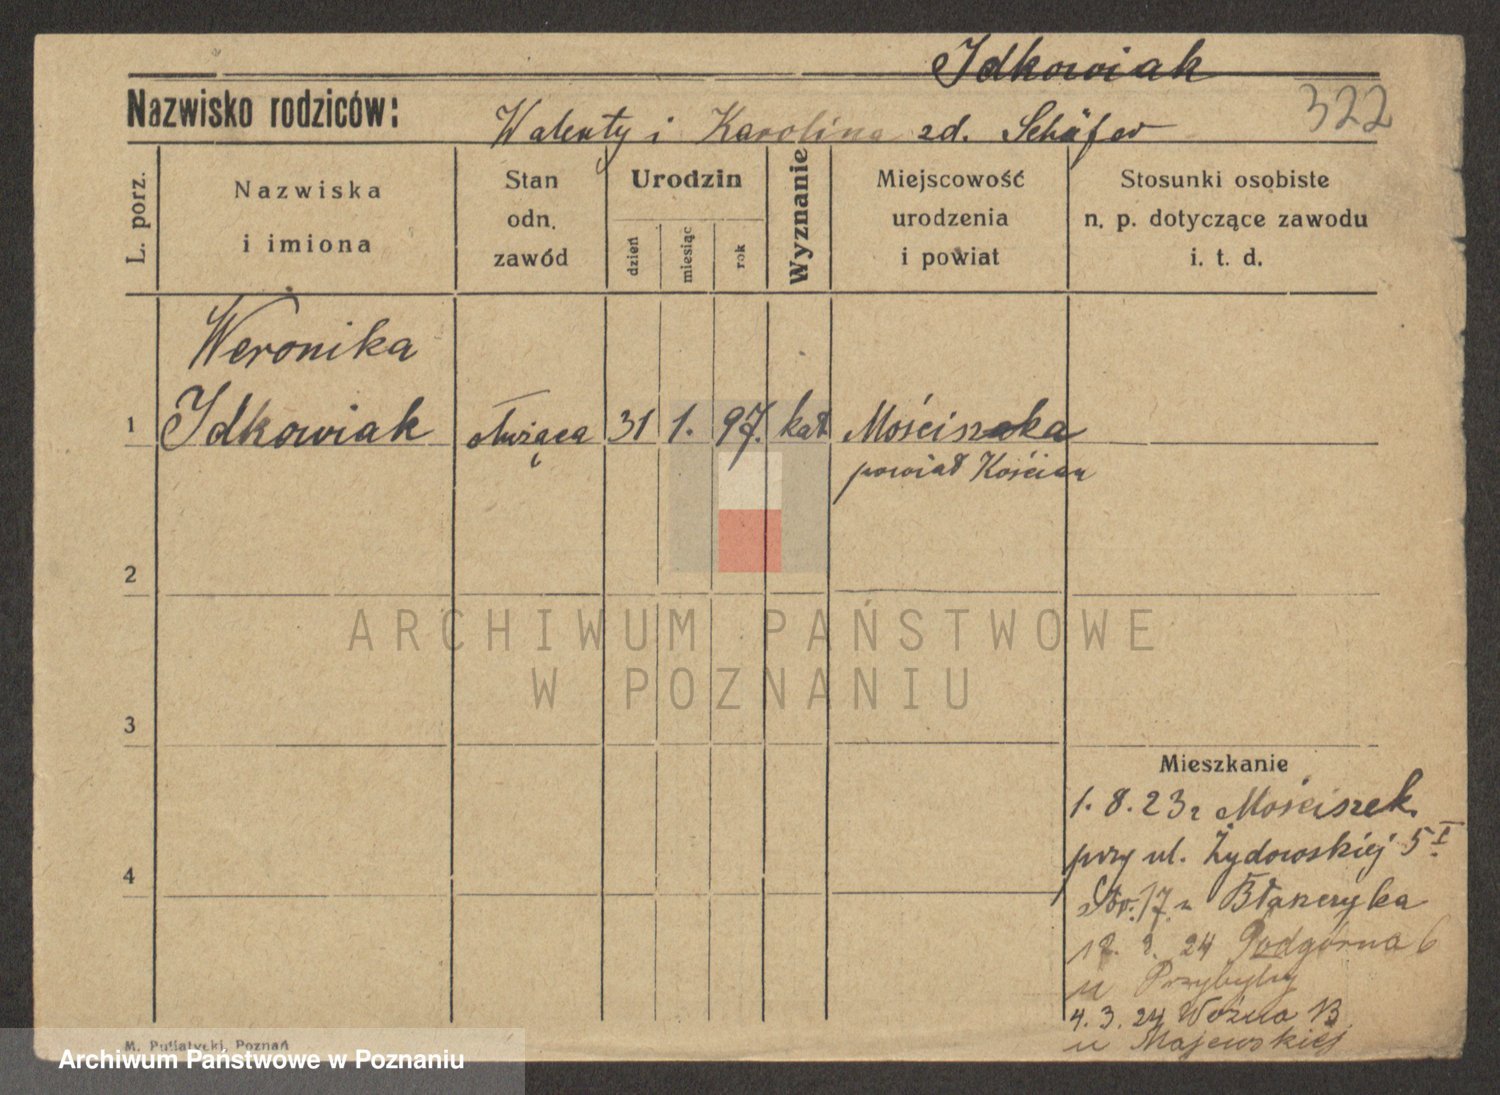 Idkowiak
Nazwisko rodziców:
Walenty i Karolina zd. Schäfer
322
L. porz.
Nazwiska
i imiona
Stan
odn.
zawód
Urodzin
dzień
miesiąc
rok
Wyznanie
Miejscowość
urodzenia
i powiat
Stosunki osobiste
n. p. dotyczące zawodu
i. t. d.
Weronika
1 Idkowiak służąca 31 1. 97. kat Mościszka
powiat Kościan
2
ARCHIWUM PAŃSTWOWE
W POZNANIU
3
Mieszkanie
1. 8. 23 z Mościszek
przy ul. Żydowskiej 5 I
17 u Błaszczyka
24 Podgórna 6
u Przybyły
4. 3. 24 Woźna 13
u Majewskiej
4
M. Putiatycki, Poznań
Archiwum Państwowe w Poznaniu